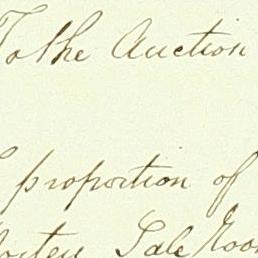 To the Auction
proportion of
Sale Room